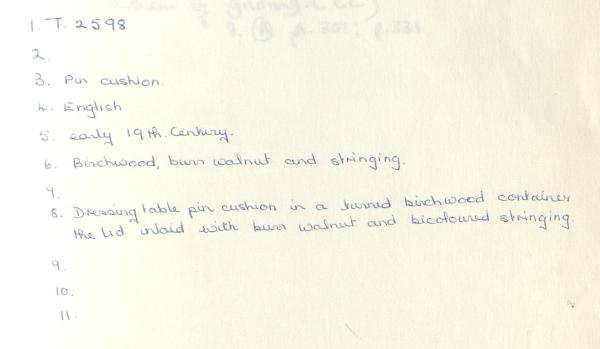 1. T. 2598
2.
3. Pin cushion.
4. English
5. early 19th. Century.
6. Birchwood, burr walnut and stringing.
7.
8. Dressing table pin cushion in a turned birchwood container
the lid inlaid with burr walnut and bicoloured stringing.
9.
10.
11.